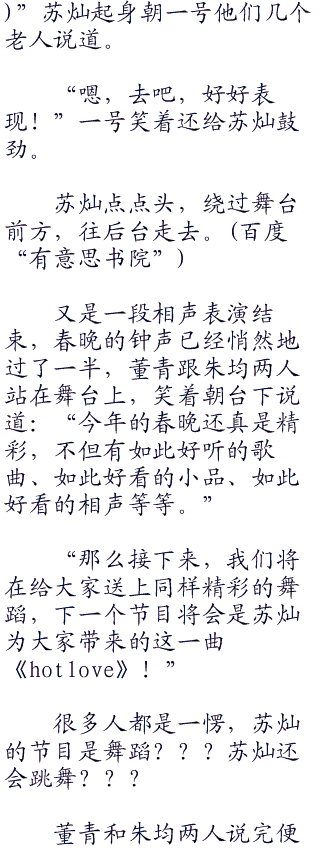 )”苏灿起身朝一号他们几个
老人说道。
“嗯，去吧，好好表
现！”一号笑着还给苏灿鼓
劲。
苏灿点点头，绕过舞台
前方，往后台走去。(百度
“有意思书院”)
又是一段相声表演结
束，春晚的钟声已经悄然地
过了一半，董青跟朱均两人
站在舞台上，笑着朝台下说
道：“今年的春晚还真是精
彩，不但有如此好听的歌
曲、如此好看的小品、如此
好看的相声等等。”
“那么接下来，我们将
在给大家送上同样精彩的舞
蹈，下一个节目将会是苏灿
为大家带来的这一曲
《hotlove》！”
很多人都是一愣，苏灿
的节目是舞蹈？？？苏灿还
会跳舞？？？
董青和朱均两人说完便